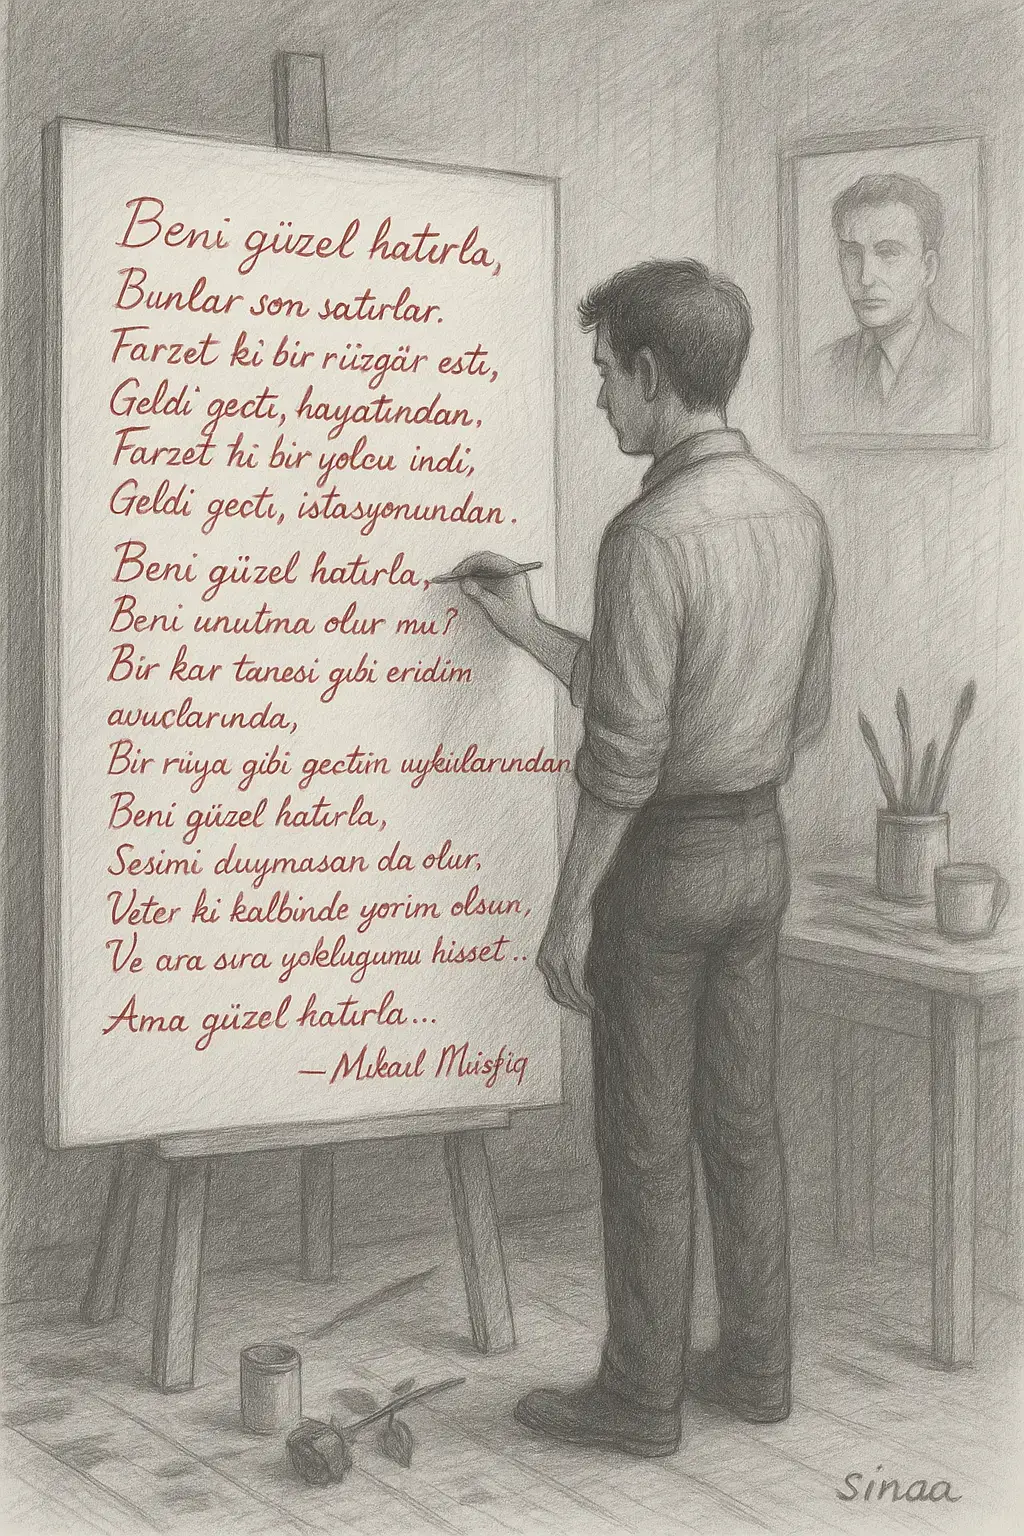 Beni güzel hatırla,
Bunlar son satırlar.
Farzet ki bir rüzgär estı,
Geldi gectı, hayatından,
Farzet hi bir yolcu indi,
Geldi gectı, istasyonundan.
Beni güzel hatırla,
Beni unutma olur mu?
Bir kar tanesi gıbi eridim
avuclarında,
Bir rüya gibi gectim uykularından
Beni güzel hatırla,
Sesimi duymasan da olur,
Veter ki kalbinde yorim olsun,
Ve ara sıra yoklugumu hisset..
Ama güzel hatırla...
—Mıkaıl Müsfiq
sinaa